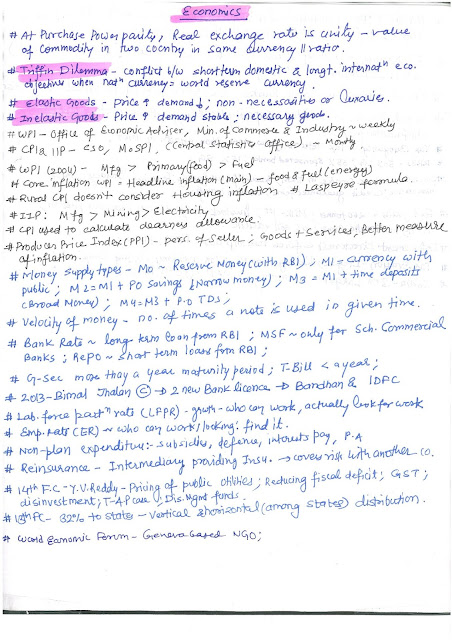 Economics
# At Purchase Power parity, Real exchange rate is unity - value
of Commodity in two country in same currency || ratio.
# Triffin Dilemma - conflict b/w short term domestic & longt. internatⁿ eco.
objectives when natⁿ currency = world reserve currency.
# Elastic Goods - Price ↑ demand ↓; non-necessaries or luxaries.
# Inelastic Goods - Price ↑ demand stable; necessary goods.
# WPI - Office of Economic Adviser, Min. of Commerce & Industry ~ weekly
# CPI & IIP - CSO, MoSPI, (Central Statistics Office). ~ Montly
# WPI (2004) - Mfg > Primary(food) > Fuel
# Core inflation WPI = Headline inflation (main) - food & fuel (energy)
# Rural CPI doesn't consider Housing inflation # Laspeyre formula.
# IIP: Mfg > Mining > Electricity
# CPI used to calculate dearness allowance.
# Producer Price Index (PPI) - pers. of Seller; Goods + Services; Better measure
of inflation.
# Money supply types - M0 ~ Reserve Money (with RBI); M1 = currency with
public; M2 = M1 + PO savings (Narrow money); M3 = M1 + time deposits
(Broad Money); M4 = M3 + P.O TDs;
# Velocity of money - no. of times a note is used in given time.
# Bank Rate ~ long-term loan from RBI; MSF ~ only for Sch. Commercial
Banks; Repo ~ short term loans from RBI;
# G-Sec more than a year maturity period; T-Bill < a year;
# 2013 - Bimal Jhalan © → 2 new Bank licence → Bandhan & IDFC
# Lab. force partⁿ rate (LFPR) - who can work, actually look for work
# Emp. Rate (ER) ~ who can work/looking: find it.
# Non-plan expenditure:- subsidies, defence, interests pay, P.A
# Reinsurance - Intermediary providing Insu. → covers risk with another co.
# 14th F.C - Y.V. Reddy - Pricing of public utilities; Reducing fiscal deficit; GST;
disinvestment; T-AP case; Dis. Mgmt funds.
# 13th FC - 32% to states - vertical & horizontal (among states) distribution.
# World Economic Forum - Geneva based NGO;